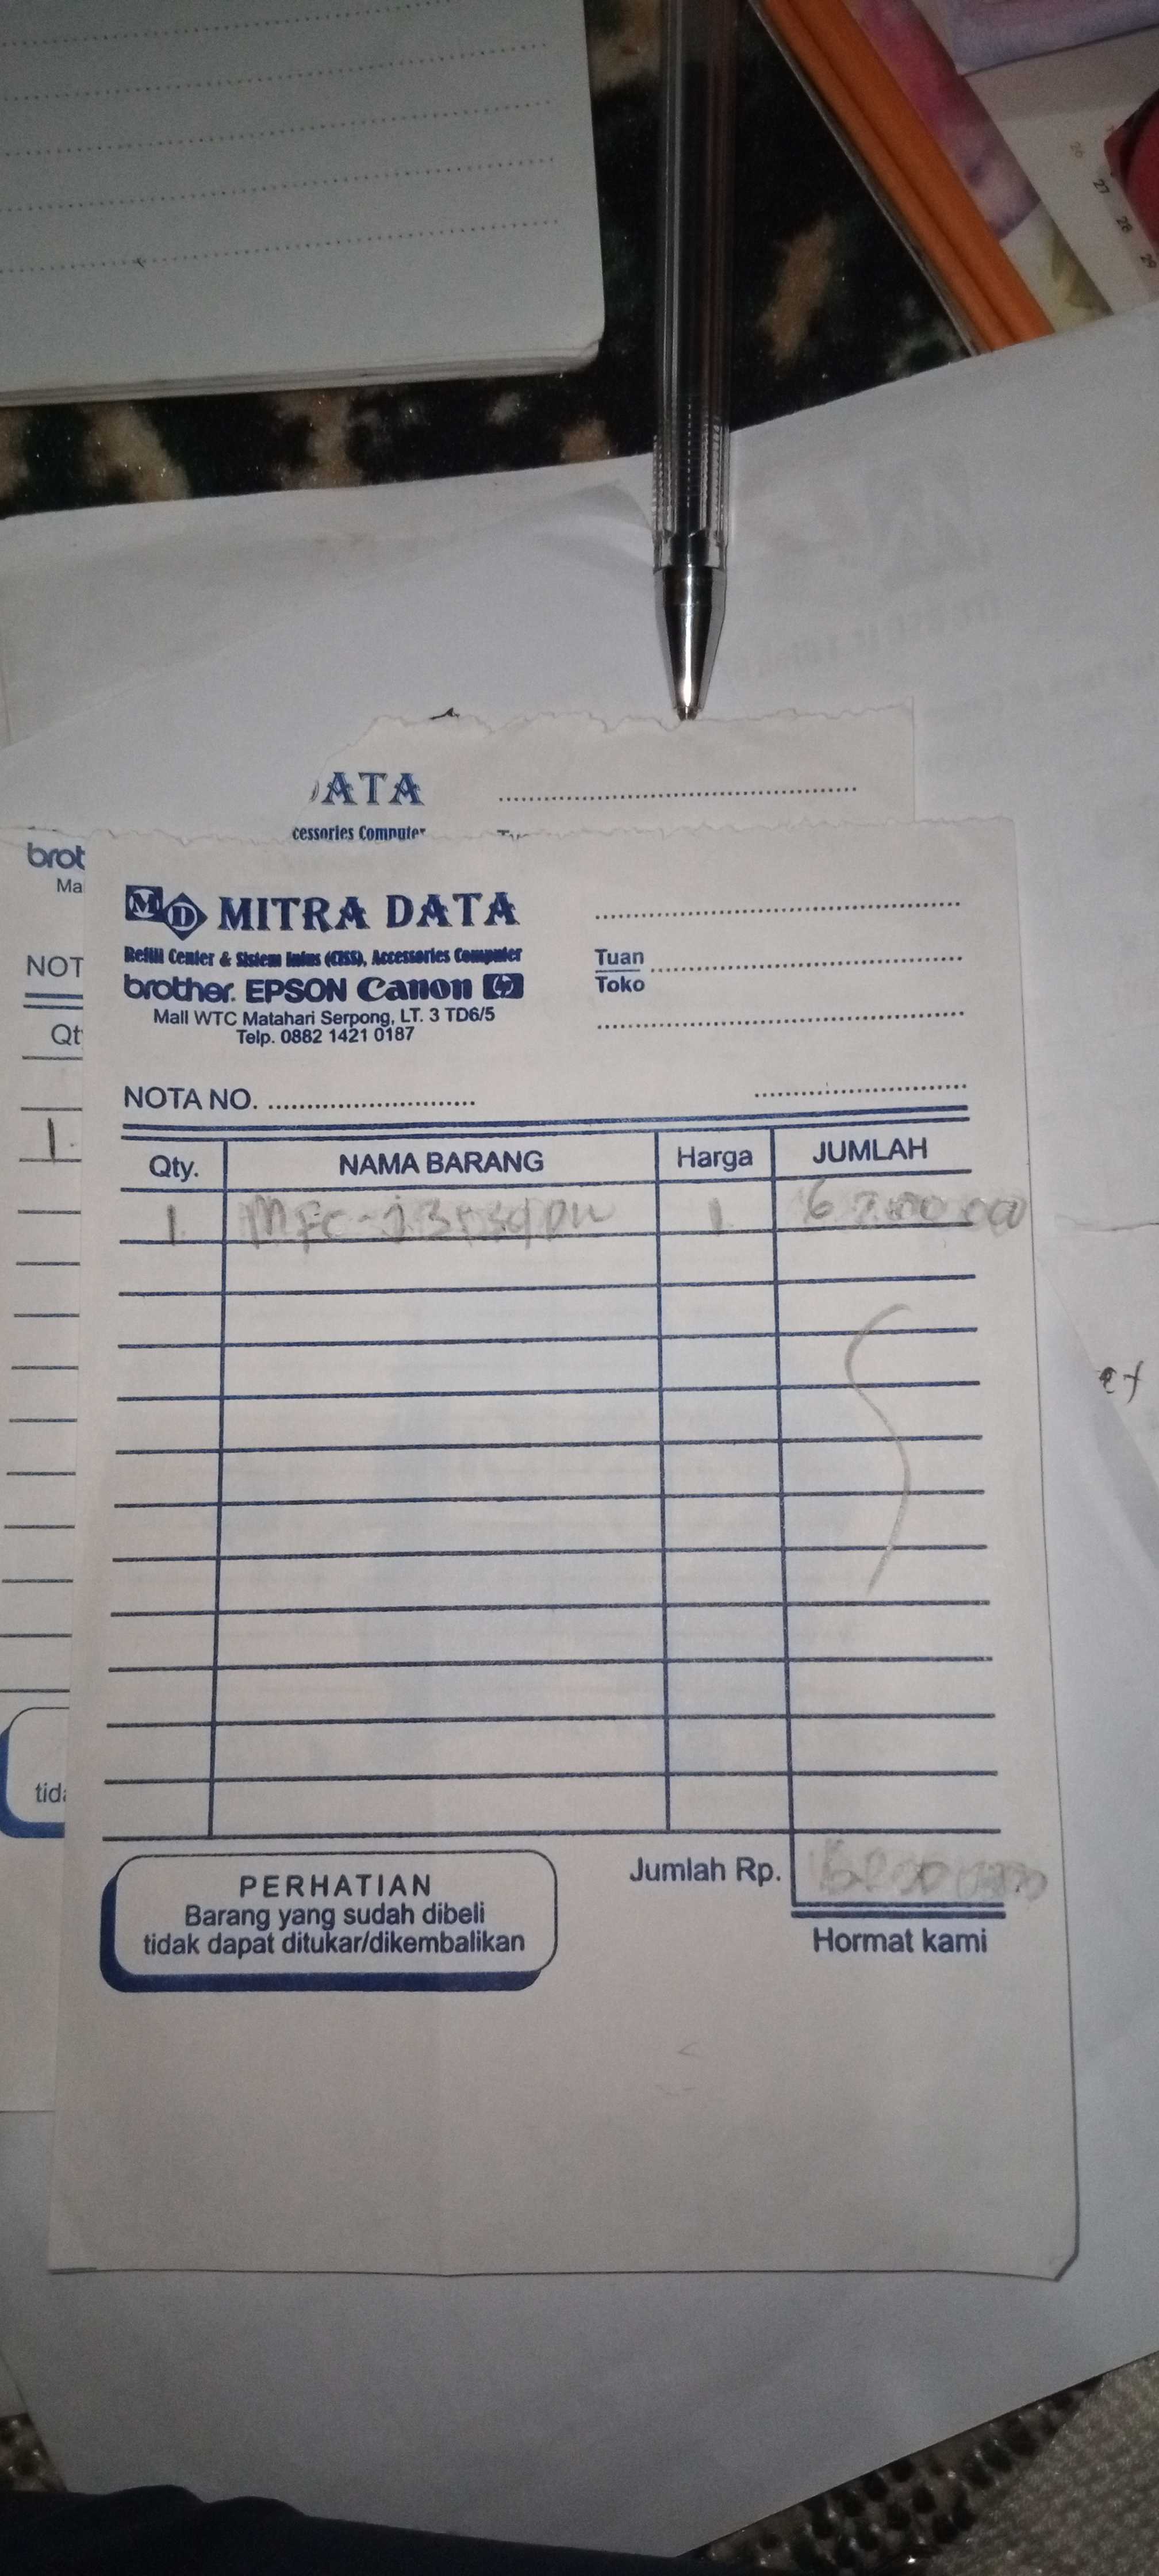 26
27
28
29
ATA
cessories Computer
brot
Ma
NOT
Qt
1.
tida
MD MITRA DATA
Refill Center & Sistem Infus (CISS), Accessories Computer
brother. EPSON Canon hp
Mall WTC Matahari Serpong, LT. 3 TD6/5
Telp. 0882 1421 0187
Tuan
Toko
NOTA NO.
Qty. NAMA BARANG Harga JUMLAH
1. 1
PERHATIAN
Barang yang sudah dibeli
tidak dapat ditukar/dikembalikan
Jumlah Rp.
Hormat kami